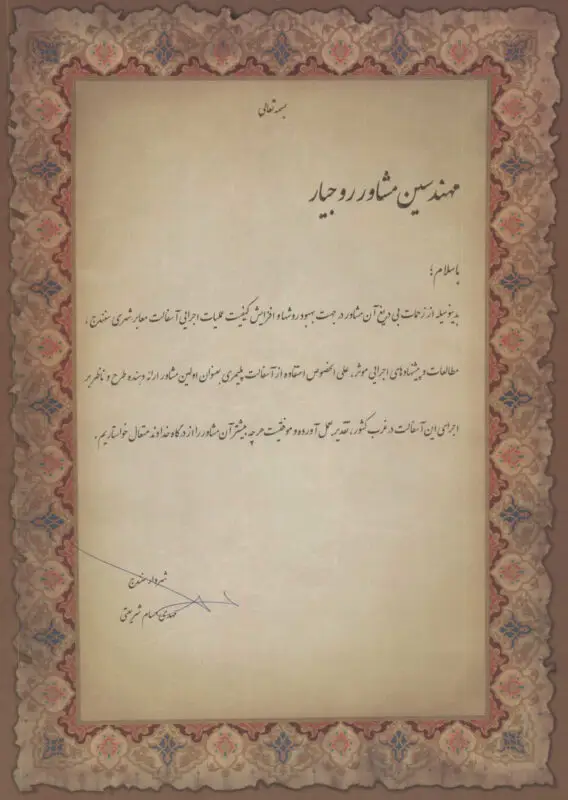 بسمه تعالی
مهندسین مشاور روجیار
با سلام؛
بدینوسیله از زحمات بی دریغ آن مشاور در جهت بهبود روشها و افزایش کیفیت عملیات اجرایی آسفالت معابر شهری سنندج،
مطالعات و پیشنهادهای اجرایی موثر، علی الخصوص استفاده از آسفالت پلیمری بعنوان اولین مشاور ارائه دهنده طرح و ناظر بر
اجرای این آسفالت در غرب کشور، تقدیر بعمل آورده و موفقیت هر چه بیشتر آن مشاور را از درگاه خداوند متعال خواستاریم.
شهردار سنندج
مهدی حسام شریعتی